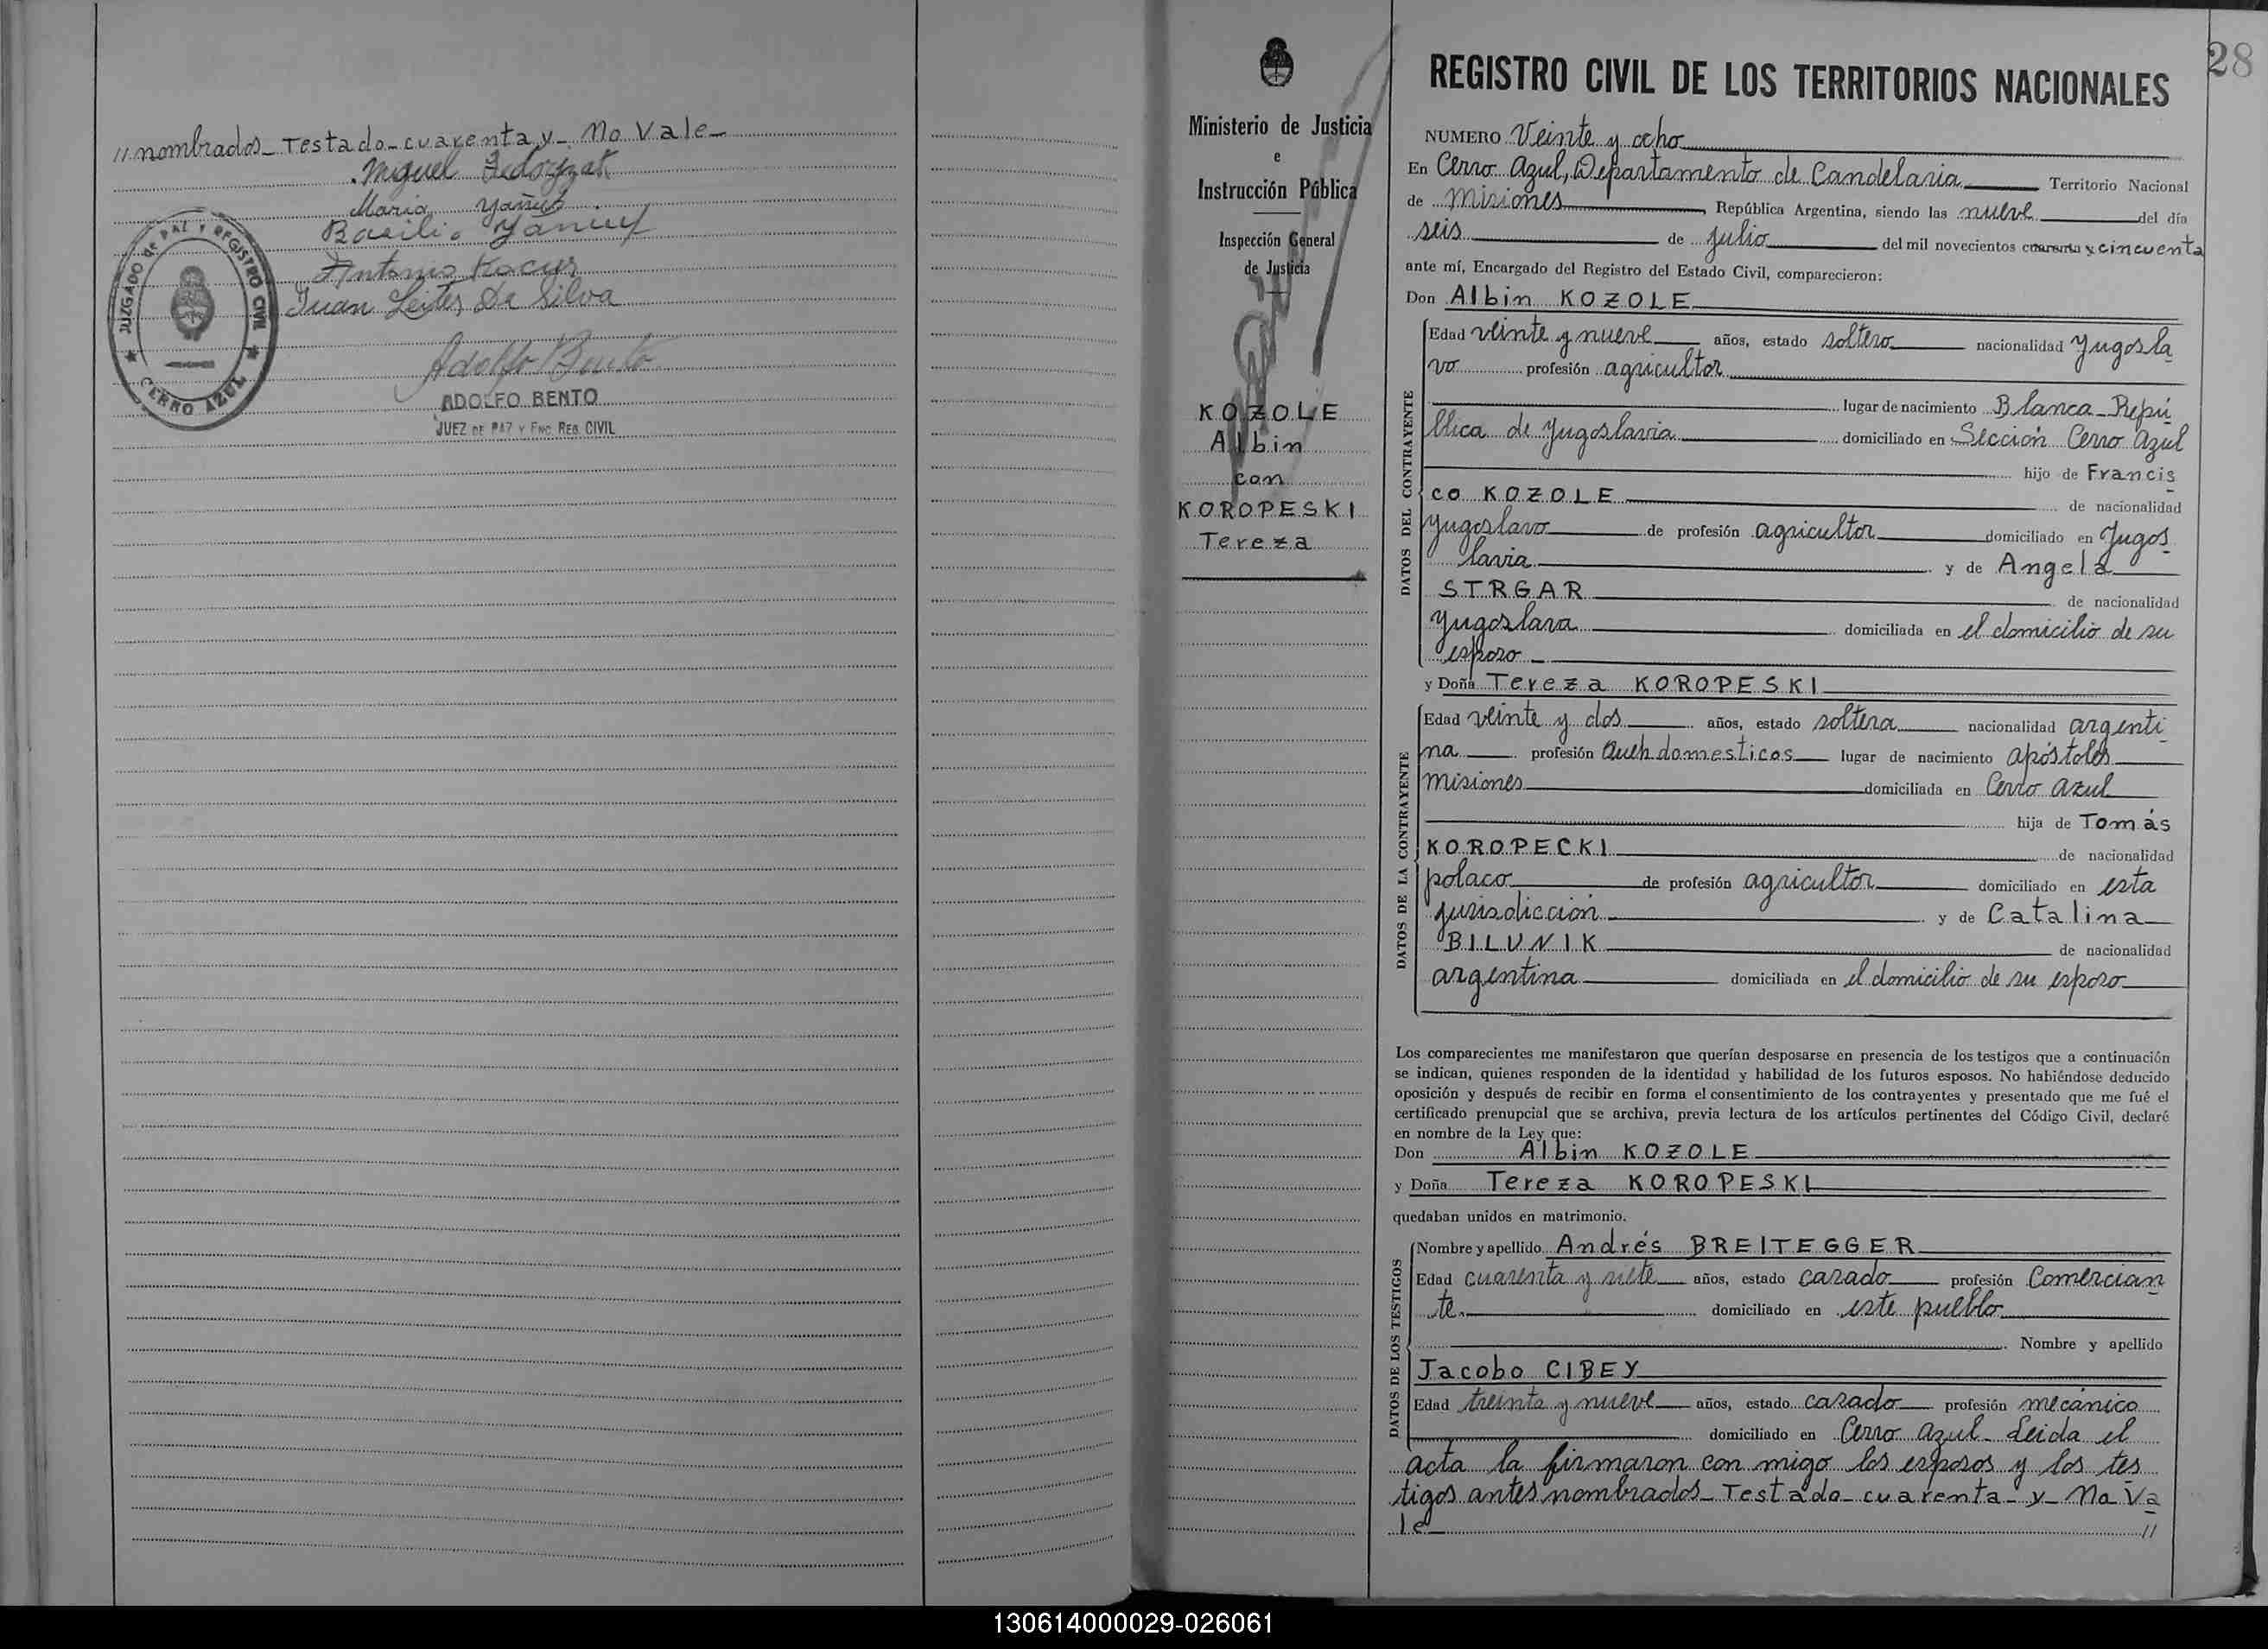 // nombrados_ Testado_ cuarenta y_ No Vale_
Miguel
Maria Yañuk
Basilio
Antonio Kacus
Juan Leites Da Silva
JUZGADO de PAZ Y REGISTRO CIVIL
★ CERRO AZUL ★
Adolfo Bento
ADOLFO BENTO
JUEZ DE PAZ Y ENC. REG. CIVIL
Ministerio de Justicia
e
Instrucción Pública
Inspección General
de Justicia
KOZOLE
Albin
con
KOROPESKI
Tereza
28
REGISTRO CIVIL DE LOS TERRITORIOS NACIONALES
NUMERO Veinte y ocho
En Cerro Azul, Departamento de Candelaria Territorio Nacional
de Misiones, República Argentina, siendo las nueve del día
seis de julio del mil novecientos cuarenta y cincuenta
ante mí, Encargado del Registro del Estado Civil, comparecieron:
Don Albin KOZOLE
DATOS DEL CONTRAYENTE
Edad veinte y nueve años, estado soltero nacionalidad Yugosla
vo profesión agricultor
lugar de nacimiento Blanca_Repú
blica de Yugoslavia domiciliado en Sección Cerro Azul
hijo de Francis
co KOZOLE de nacionalidad
yugoslavo de profesión agricultor domiciliado en Yugos
lavia y de Angela
STRGAR de nacionalidad
yugoslava domiciliada en el domicilio de su
esposo_
y Doña Tereza KOROPESKI
DATOS DE LA CONTRAYENTE
Edad veinte y dos años, estado soltera nacionalidad argenti
na profesión Queh. domesticos lugar de nacimiento Apóstoles
Misiones domiciliada en Cerro Azul
hija de Tomás
KOROPECKI de nacionalidad
polaco de profesión agricultor domiciliado en esta
jurisdicción y de Catalina
BILUNIK de nacionalidad
argentina domiciliada en el domicilio de su esposo
Los comparecientes me manifestaron que querían desposarse en presencia de los testigos que a continuación
se indican, quienes responden de la identidad y habilidad de los futuros esposos. No habiéndose deducido
oposición y después de recibir en forma el consentimiento de los contrayentes y presentado que me fué el
certificado prenupcial que se archiva, previa lectura de los artículos pertinentes del Código Civil, declaré
en nombre de la Ley que:
Don Albin KOZOLE
y Doña Tereza KOROPESKI
quedaban unidos en matrimonio.
DATOS DE LOS TESTIGOS
Nombre y apellido Andrés BREITEGGER
Edad cuarenta y siete años, estado casado profesión Comercian
te. domiciliado en este pueblo
Nombre y apellido
Jacobo CIBEY
Edad treinta y nueve años, estado casado profesión mecánico
domiciliado en Cerro Azul_ Leida el
acta la firmaron con migo los esposos y los tes
tigos antes nombrados_ Testado_ cuarenta_ y_ No Va
le_ //
130614000029-026061